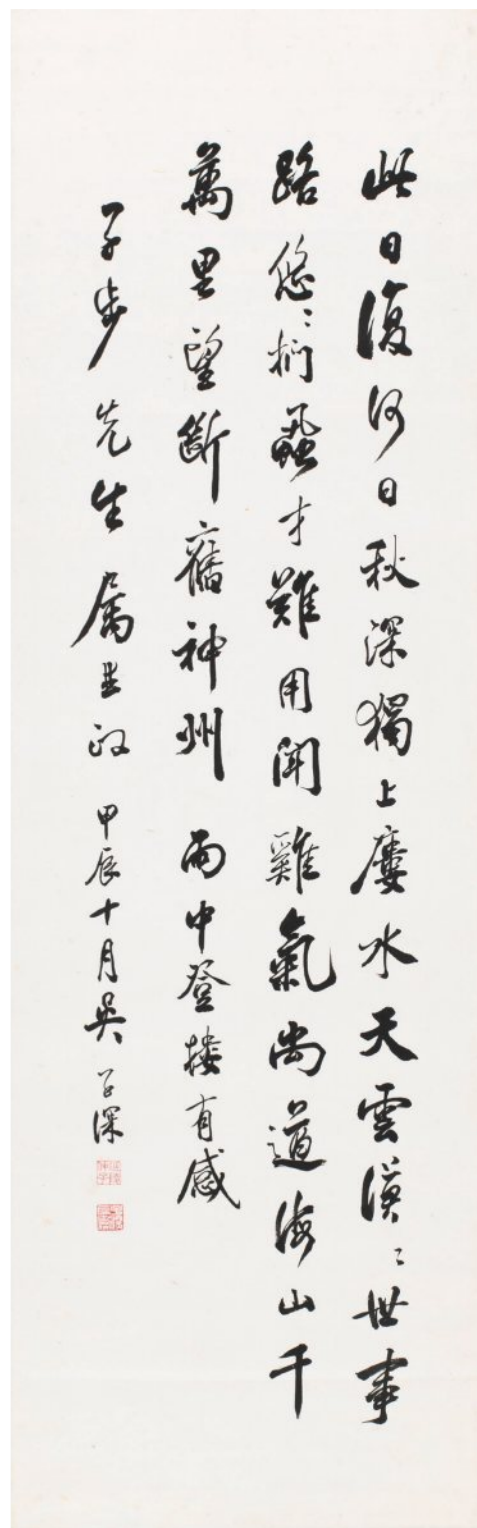 此日復何日秋深獨上廔水天雲漠〻世事
路悠〻捫蝨才難用聞雞氣尚遒海山千
萬里望斷舊神州 雨中登樓有感
子步先生屬正政 甲辰十月吳子深